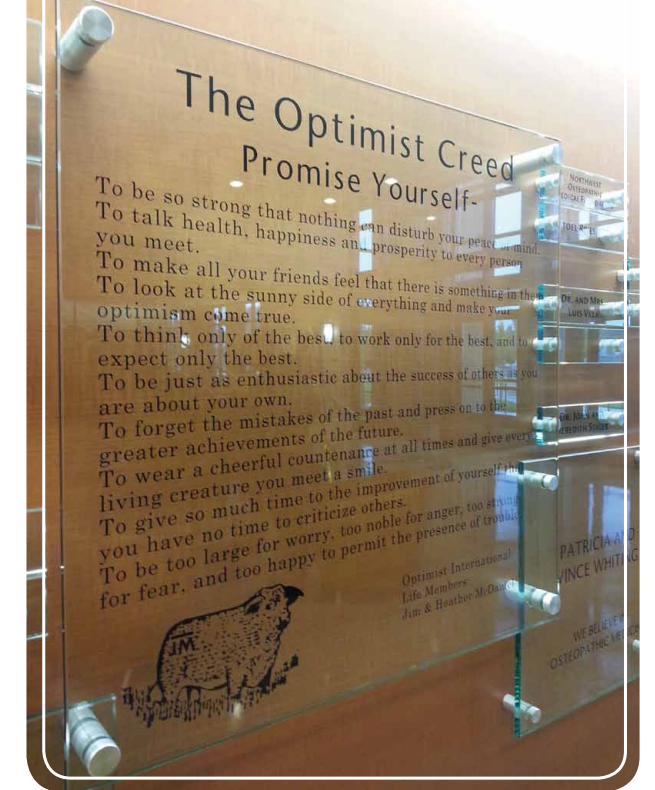 The Optimist Creed
Promise Yourself-
To be so strong that nothing can disturb your peace of mind.
To talk health, happiness and prosperity to every person
you meet.
To make all your friends feel that there is something in them
To look at the sunny side of everything and make your
optimism come true.
To think only of the best, to work only for the best, and to
expect only the best.
To be just as enthusiastic about the success of others as you
are about your own.
To forget the mistakes of the past and press on to the
greater achievements of the future.
To wear a cheerful countenance at all times and give every
living creature you meet a smile.
To give so much time to the improvement of yourself that
you have no time to criticize others.
To be too large for worry, too noble for anger, too strong
for fear, and too happy to permit the presence of trouble.
Optimist International
Life Members
Jim & Heather
NORTHWEST
OSTEOPATHIC
DR. AND MRS.
LUIS
DR. JOHN AND
PATRICIA AND
VINCE WHITING
WE BELIEVE IN
OSTEOPATHIC